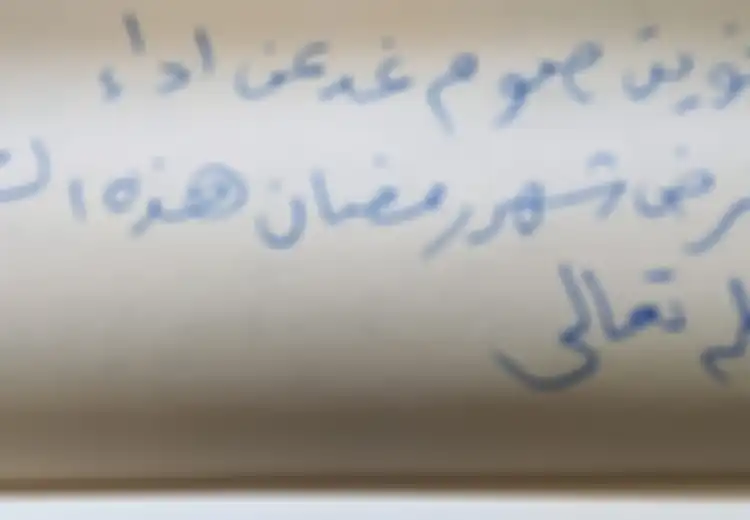 نويت صوم غد عن اداء
رض شهر رمضان هذه ال
لله تعالى